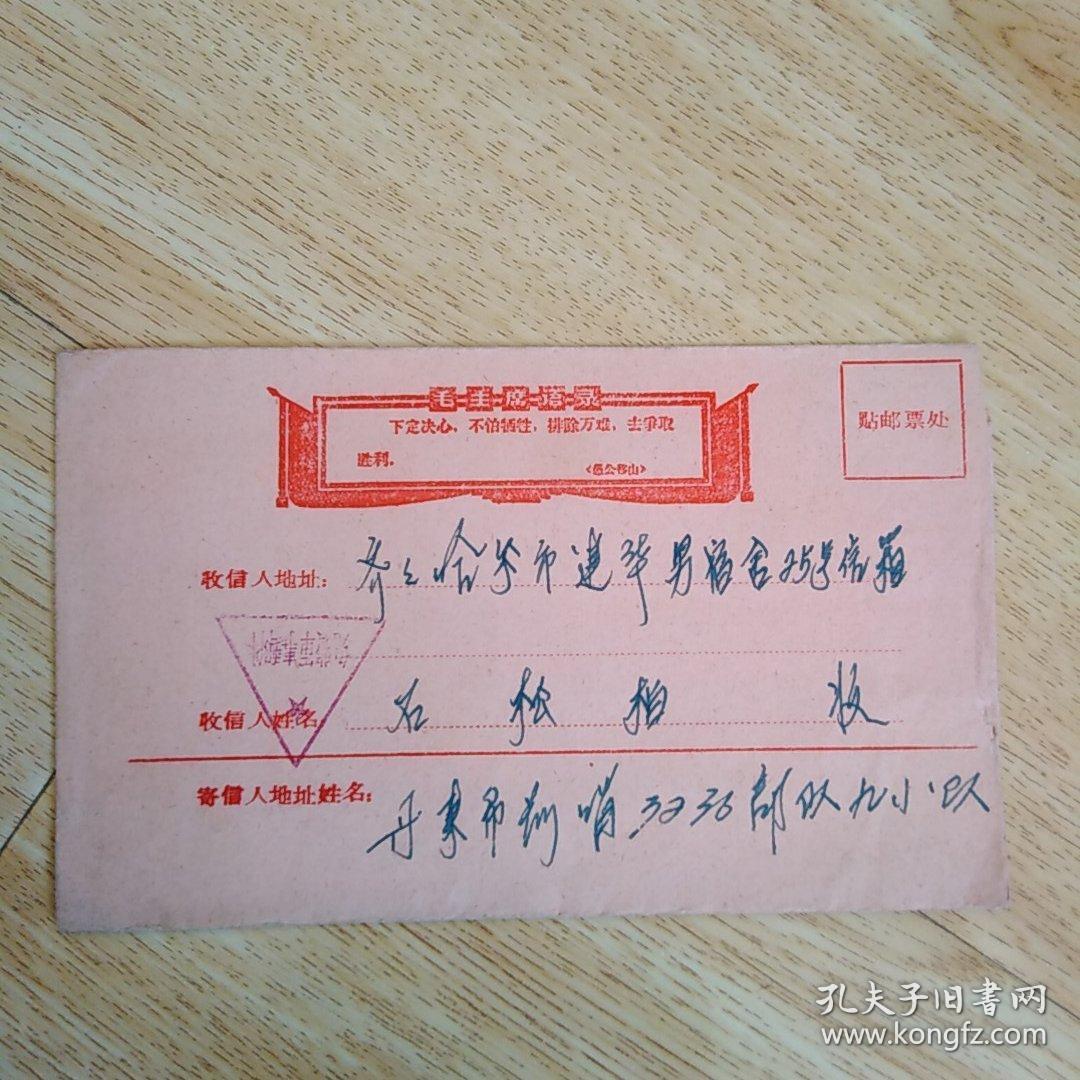 毛主席语录
下定决心，不怕牺牲，排除万难，去争取
胜利。
《愚公移山》
贴邮票处
收信人地址：齐々哈尔市建华男宿舍25号信箱
收信人姓名：石松柏 收
寄信人地址姓名：丹东市 3230部队九小队
孔夫子旧书网
www.kongfz.com